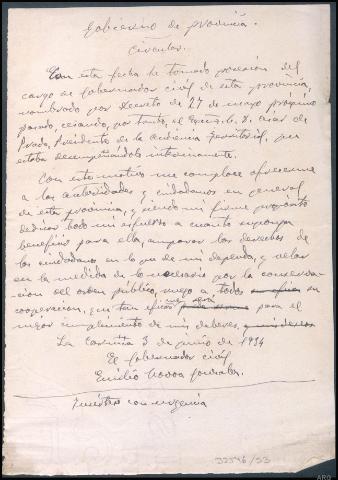 Gobierno de provincia.
Circular.
Con esta fecha he tomado posesión del
cargo de Gobernador civil de esta provincia,
nombrado por Decreto de 27 de mayo próximo
pasado, cesando, por tanto, el Excmo. Sr. D. Cesar de
Prada, Presidente de la Audiencia Territorial, que
estaba desempeñandolo interinamente.
Con este motivo me complace ofrecerme
a las autoridades y ciudadanos en general
de esta provincia, y siendo mi firme propósito
dedicar todo mi esfuerzo a cuanto suponga
beneficio para ella, amparar los derechos de
los ciudadanos en lo que de mi dependa, y velar
en la medida de lo necesario por la conserva-
cion del orden público, ruego a todos su
cooperacion, que tan eficaz me será para el
mejor cumplimiento de mis deberes.
La Coruña 3 de junio de 1934
El Gobernador civil
Emilio Novoa González
Insértese con urgencia
32546/53
ARG